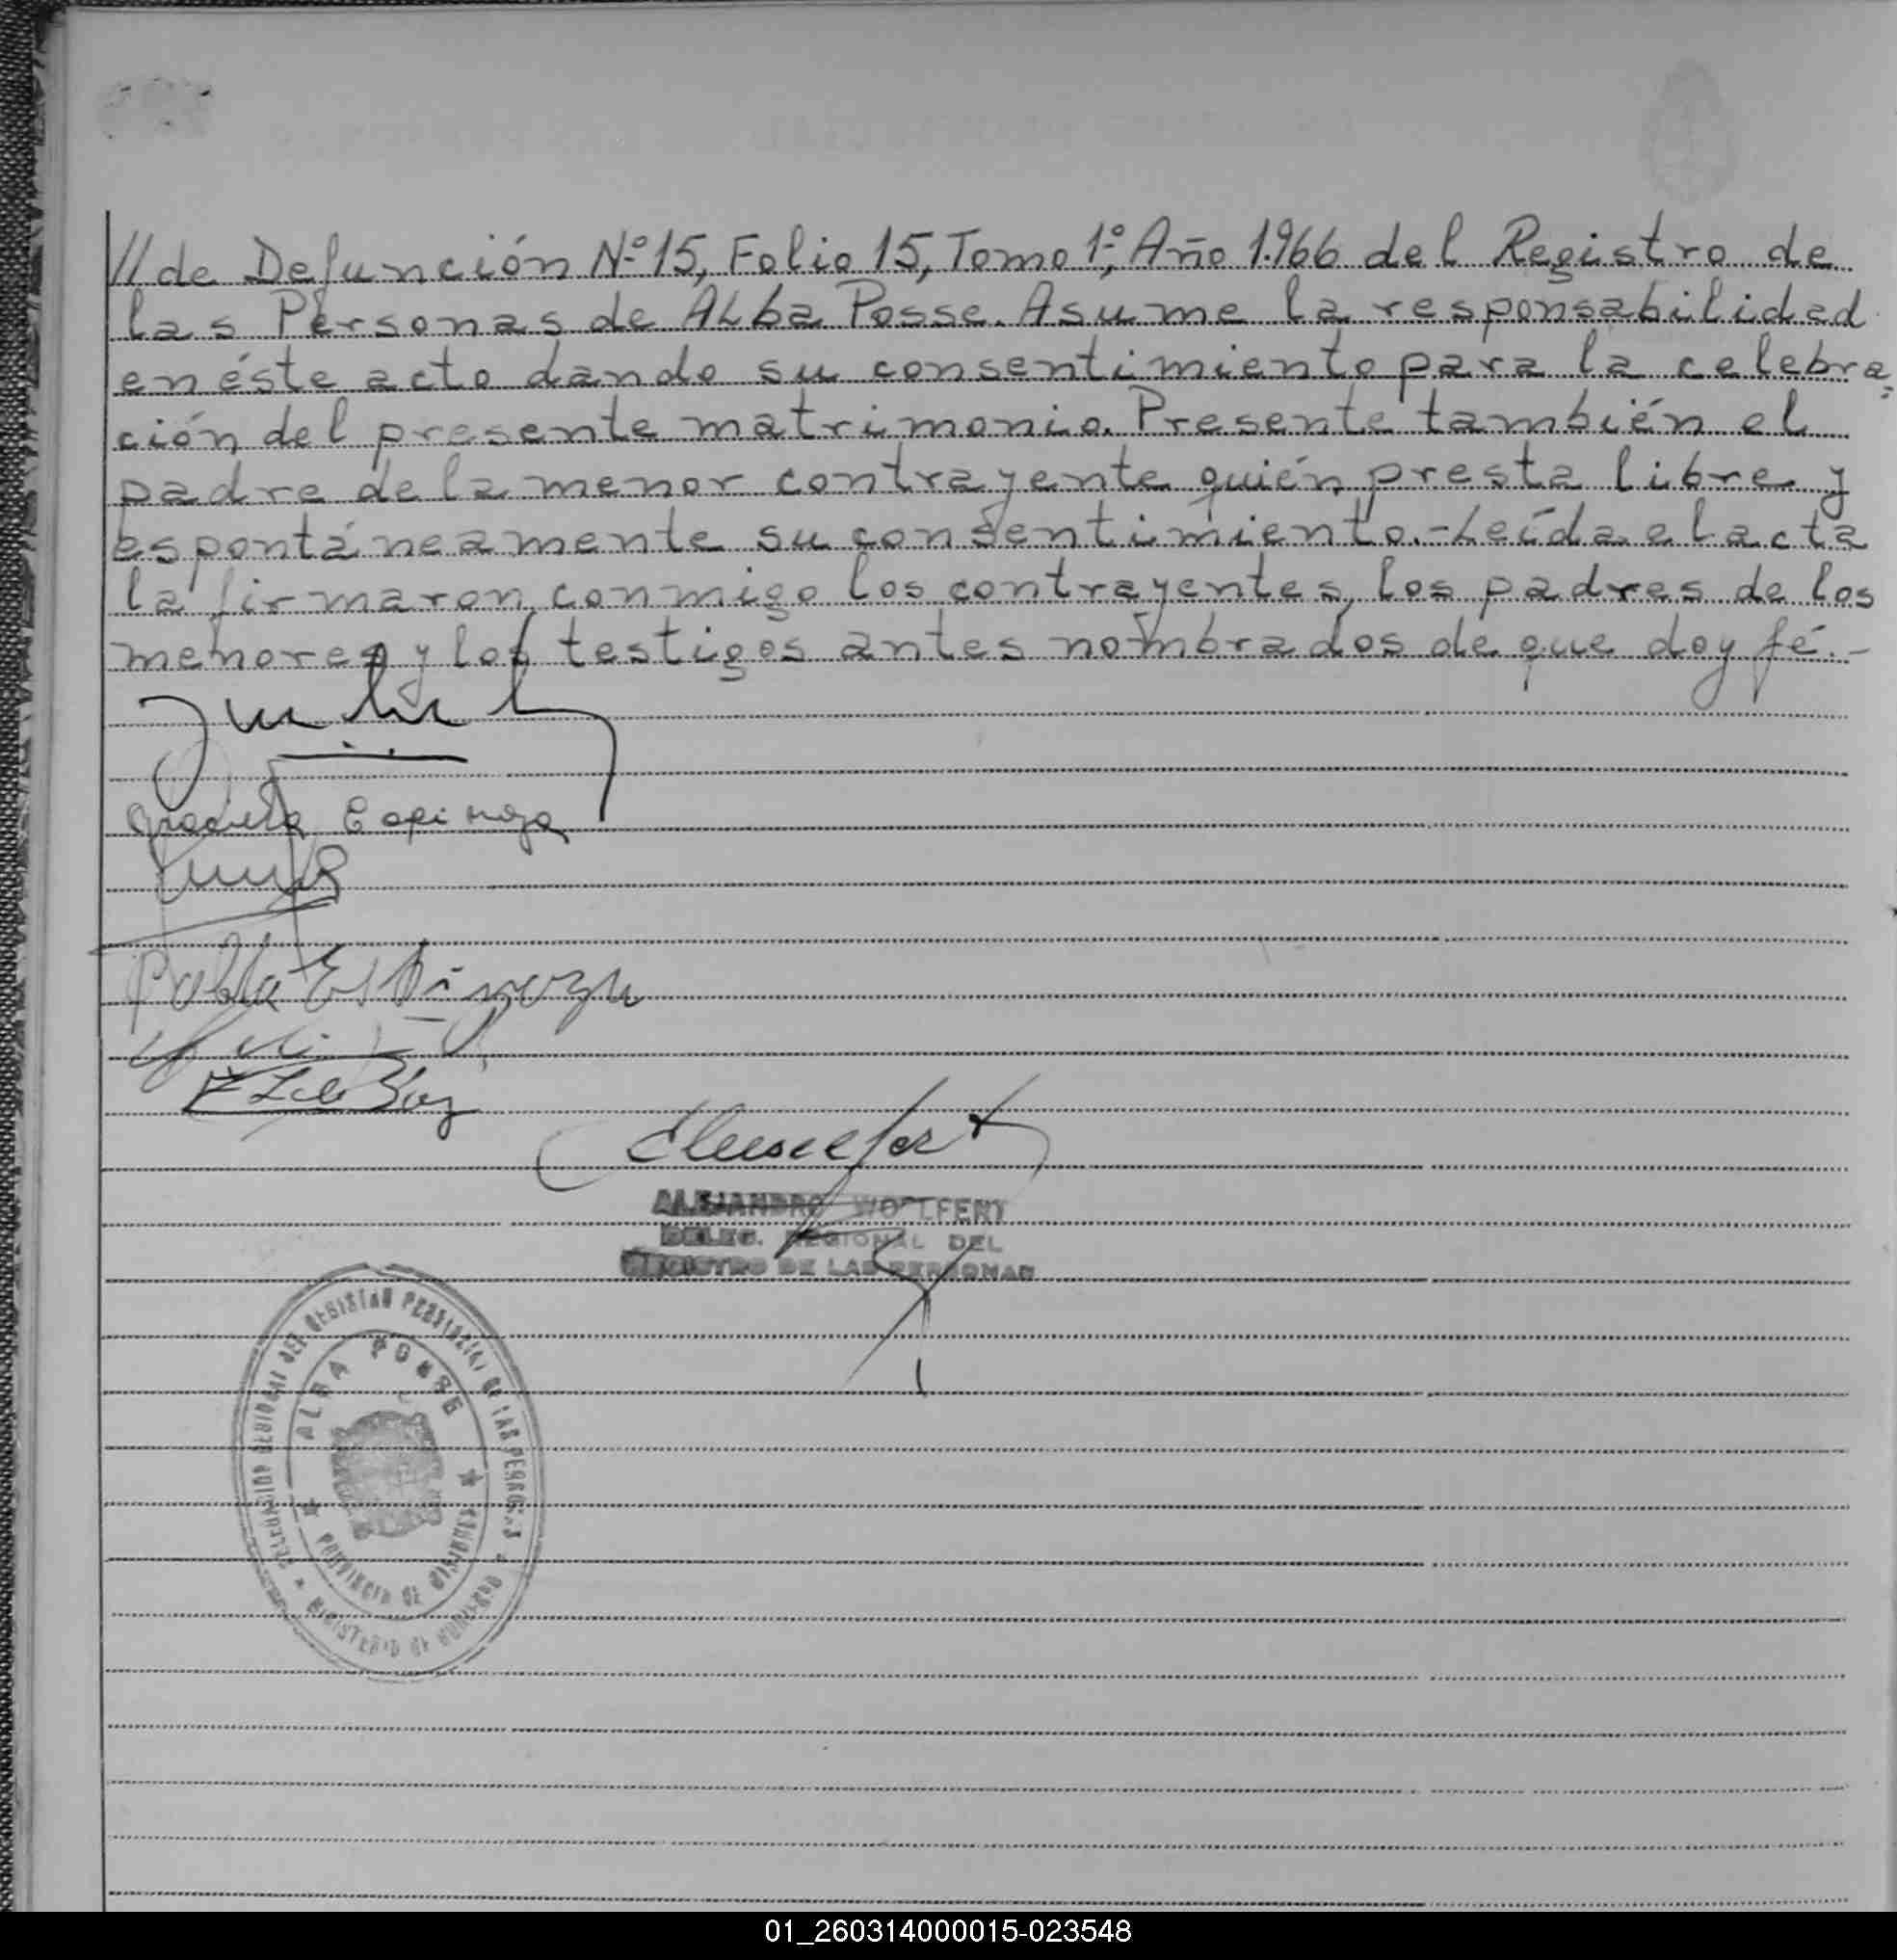 // de Defunción Nº 15, Folio 15, Tomo 1º, Año 1.966 del Registro de
las Personas de Alba Posse. Asume la responsabilidad
en éste acto dando su consentimiento para la celebra-
ción del presente matrimonio. Presente también el
padre de la menor contrayente quién presta libre y
espontáneamente su consentimiento.- Leída el acta
la firmaron conmigo los contrayentes, los padres de los
menores y los testigos antes nombrados de que doy fé.-
Graciela Espinoza
Espinoza
ALEJANDRO WOLFERT
DELEG. REGIONAL DEL
REGISTRO DE LAS PERSONAS
ALBA POSSE
PROVINCIA DE MISIONES
01_260314000015-023548